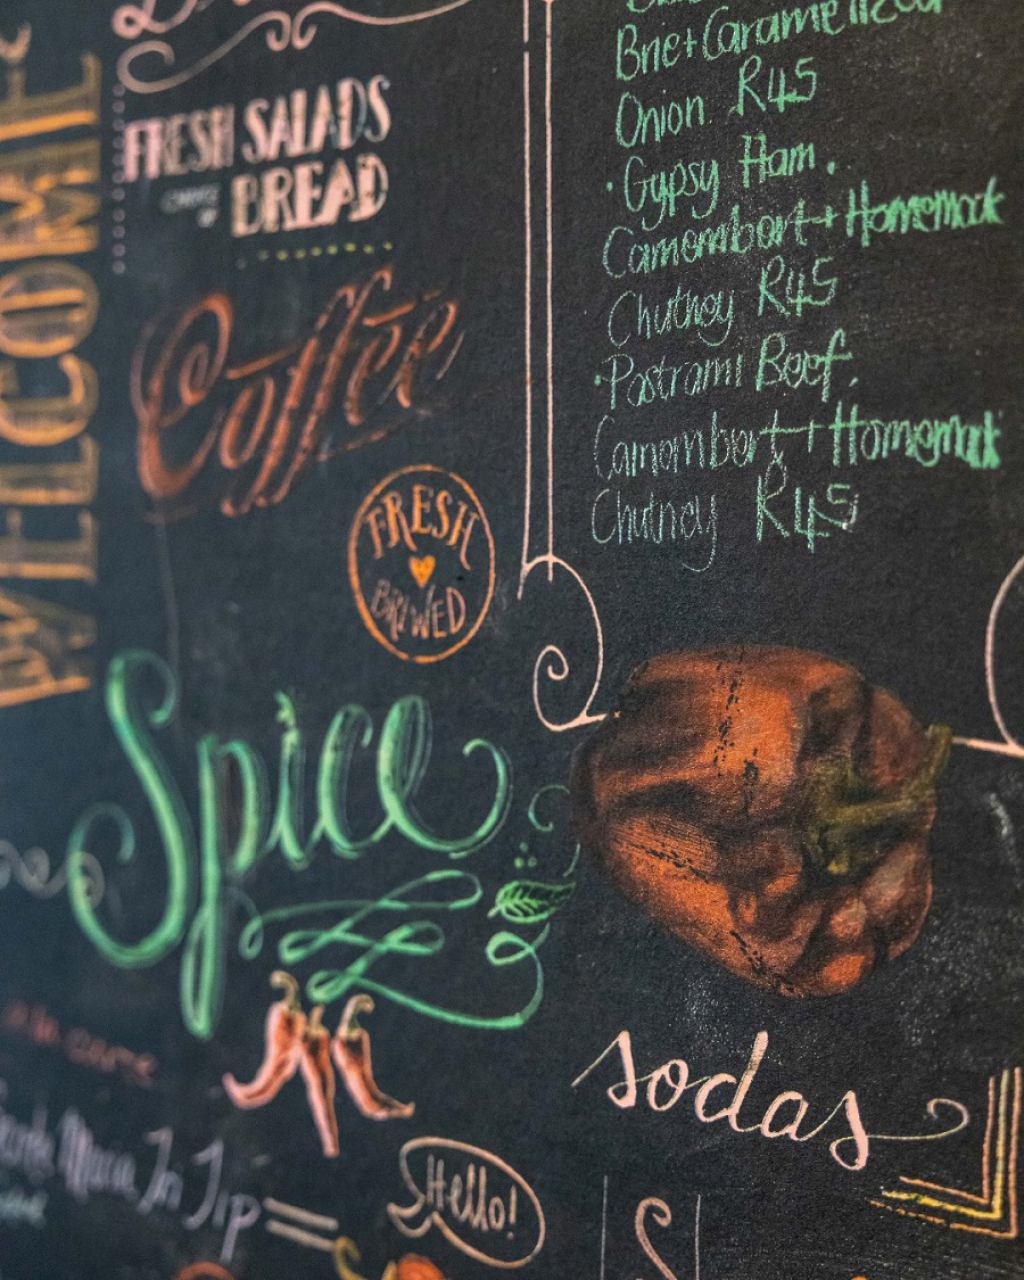 WELCOME
FRESH SALADS
BREAD
Coffee
FRESH
BREWED
Spice
Hello!
Brie + Caramelized
Onion R45
· Gypsy Ham.
Camembert + Homemade
Chutney R45
· Pastrami Beef.
Camembert + Homemade
Chutney R45
sodas